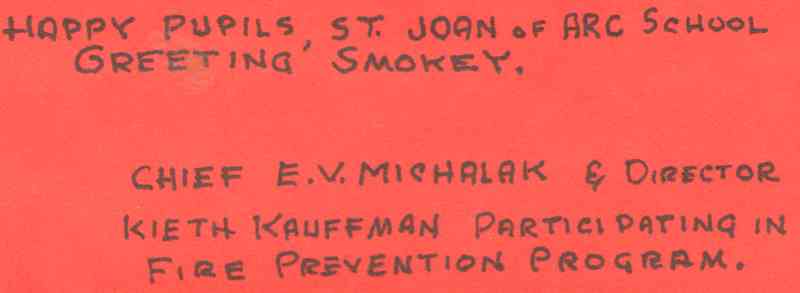 HAPPY PUPILS, ST. JOAN OF ARC SCHOOL
GREETING' SMOKEY.
CHIEF E.V. MICHALAK & DIRECTOR
KIETH KAUFFMAN PARTICIPATING IN
FIRE PREVENTION PROGRAM.